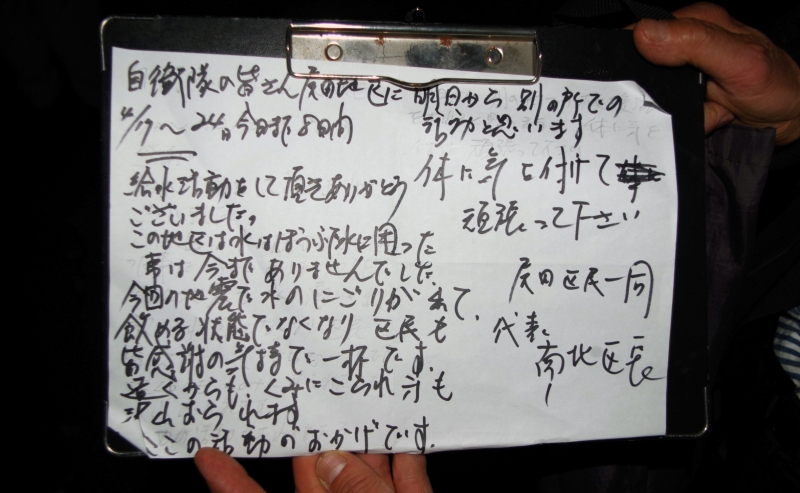 自衛隊の皆さん尿田地区に
4/17〜24日今日まで8日間
給水活動をして頂きありがとう
ございました。
この地区は水はほうふで水に困った
事は今までありませんでした
今回の地震で水のにごりが出て、
飲める状態でなくなり 区民も
皆感謝の気持で一杯です。
遠くからも、くみにこられ方も
沢山おられます
ここの活動のおかげです。
明日から別の所での
活動と思います
体に気を付けて
頑張って下さい
区民一同
代表
南北区長